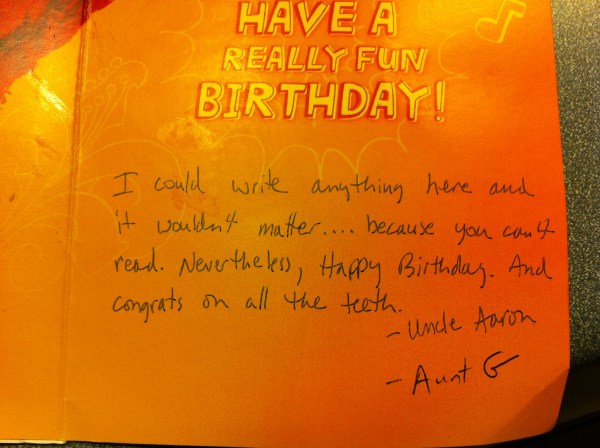 HAVE A
REALLY FUN
BIRTHDAY!
I could write anything here and
it wouldn't matter.... because you can't
read. Nevertheless, Happy Birthday. And
congrats on all the teeth.
- Uncle Aaron
- Aunt G